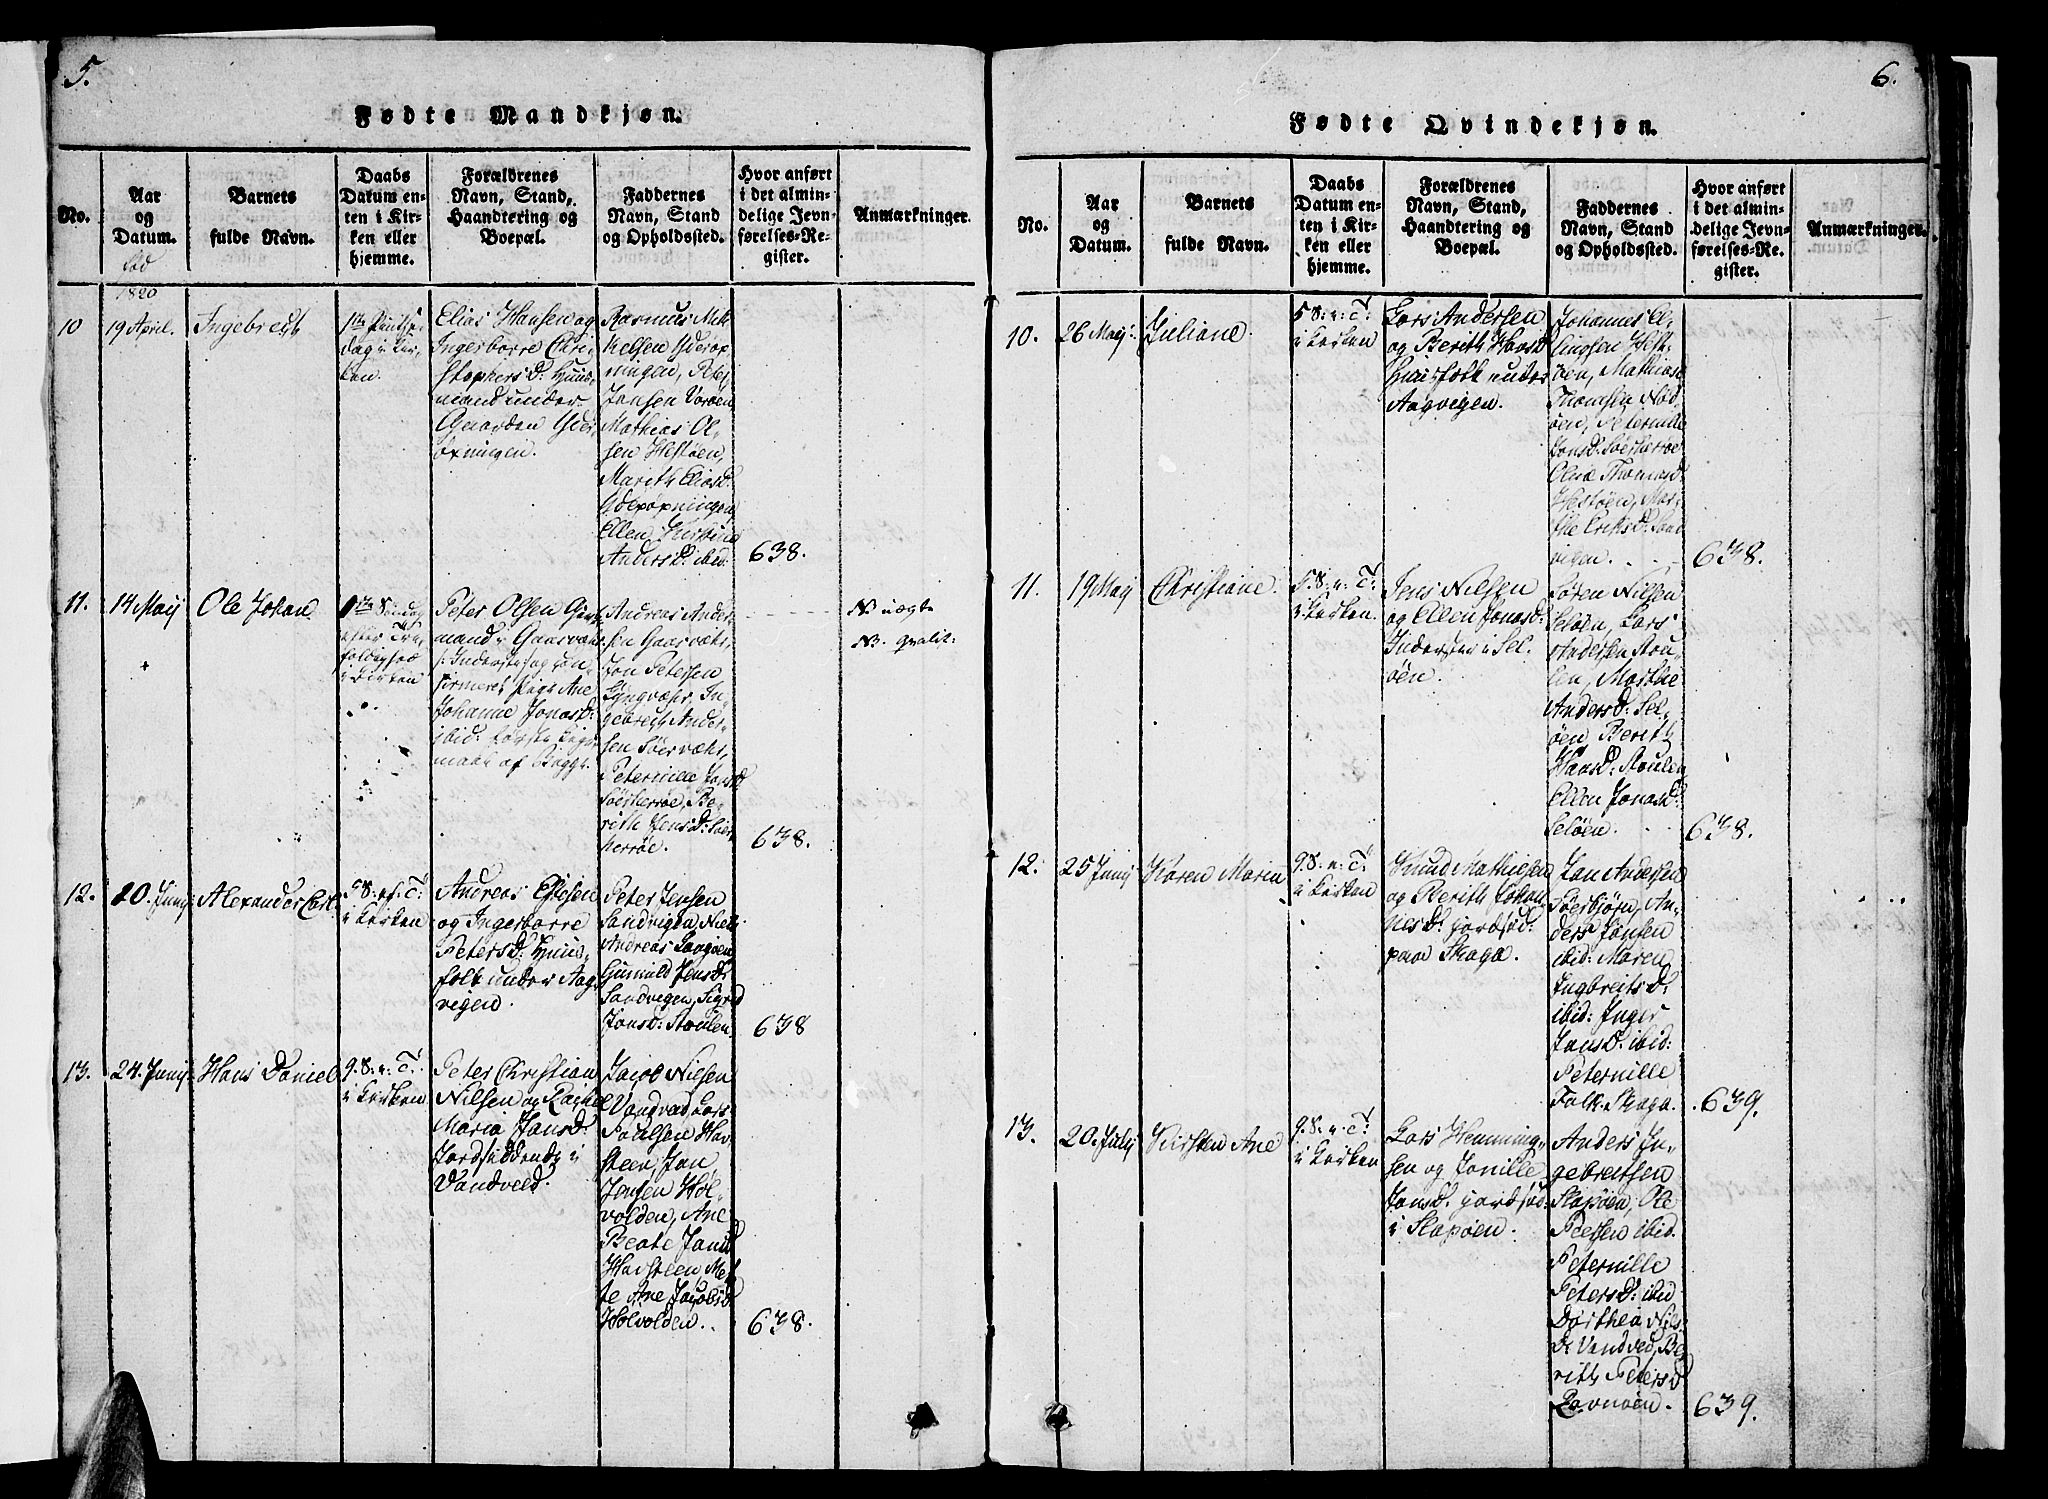 5.
Fødte Mandkjøn.
No.
Aar
og
Datum.
Barnets
fulde Navn.
Daabs
Datum en-
ten i Kir-
ken eller
hjemme.
Forældrenes
Navn, Stand,
Haandtering og
Boepæl.
Faddernes
Navn, Stand
og Opholdssted.
Hvor anført
i det almin-
delige Jevn-
førelses-Re-
gister.
Anmærkninger.
1820
10
19 April.
Ingebregt
dag i Kir-
ken.
Elias Hansen og
Ingerborre Chri-
stophersd: Huus-
mand under
Gaarden Yder
Rasmus Mik
kelsen
Peter
Jansen Vorøen
Mathias Ol-
sen Hestøen,
Marith Eliasd:
Ellen Kirstine
Andersd: ibid:
638.
11.
14 Maij
Ole Johan
1ste Søndag
efter Tre-
foldighed
i Kirken
Peter Olsen
mand i Gaasvær
Ane
Johanne Jonasd:
ibid: første Leger-
maal af Begge.
Andreas Ander-
sen Gaasvær,
Jon Petersen
Lyngvær, In-
gebregt Ander-
sen
Peternille Jonsd:
Be-
rith Jensd:
herrøe.
638.
N uægte
N. qvalit:
12.
20. Junij
Alexander Carl
5 S: ef: T:
i Kirken
Andreas
og Ingerborre
Petersd: Huus-
folk under Aag-
vigen.
Peter Jensen
Sandvigen, Niels
Andreas
Gunnild Jensd:
Sandvigen, Sigrid
Jonsd: Stoulen
638
13.
24. Junij
Hans Daniel
9. S: e: T:
i Kirken
Peter Christian
Nilsen og Rachel
Maria Jansd:
Jordsiddende i
Vandveld.
Jacob Nilsen
Vandved Lars
Poulsen Hav-
steen, Jan
Jensen Hol-
volden, Ane
Beate Jansd
Havsteen Met
te Ane Jacobsd
Holvolden.
638.
6.
Fødte Qvindekjøn.
No.
Aar
og
Datum.
Barnets
fulde Navn.
Daabs
Datum en-
ten i Kir-
ken eller
hjemme.
Forældrenes
Navn, Stand,
Haandtering og
Boepæl.
Faddernes
Navn, Stand
og Opholdssted.
Hvor anført
i det almin-
delige Jevn-
førelses-Re-
gister.
Anmærkninger.
10.
26 Maij:
Juliane
5 S: e: T:
i Kirken
Lars Andersen
og Berith Hansd
Huusfolk under
Aagvigen.
Johannes El-
lingsen Hest-
øen, Mathias
Thomsen Nød
øen, Peternille
Jonsd:
Olina Thomasd:
Hestøen, Mar-
the Eriksd: Sand
vigen.
638.
11.
19 Maij
Christiane
5. S: e: T:
i Kirken.
Jens Nilsen
og Ellen Jonasd:
Inderster i Sel-
øen.
Søren Nilsen
Seløen, Lars
Andersen Stou-
len, Marthe
Andersd: Sel-
øen Berith
Hansd: Stoulen
Ellen Jonasd:
Seløen.
638.
12.
25 Junij
Karen Maria
9 S: e: T:
i Kirken
Knud Mathiesen
og Berith Johan
nesd: jordsid:
paa Skaga.
Jan Andersen
Søerbjørn, An-
ders Jansen
ibid: Maren
Ingbreitsd:
ibid: Inger
Jansd: ibid:
Peternille
Falk Skaga.
639.
13.
20. Julij
Kirsten Ane
9. S: e: T:
i Kirken
Lars Henning-
sen og Jonille
Jansd: jordsid:
i Slapøen.
Anders In-
gebreitsen
Slapøen, Ole
Persen ibid.
Peternille
Petersd: ibid
Dorthea Nils-
D: Vandved, Be
rith Petersd
639.